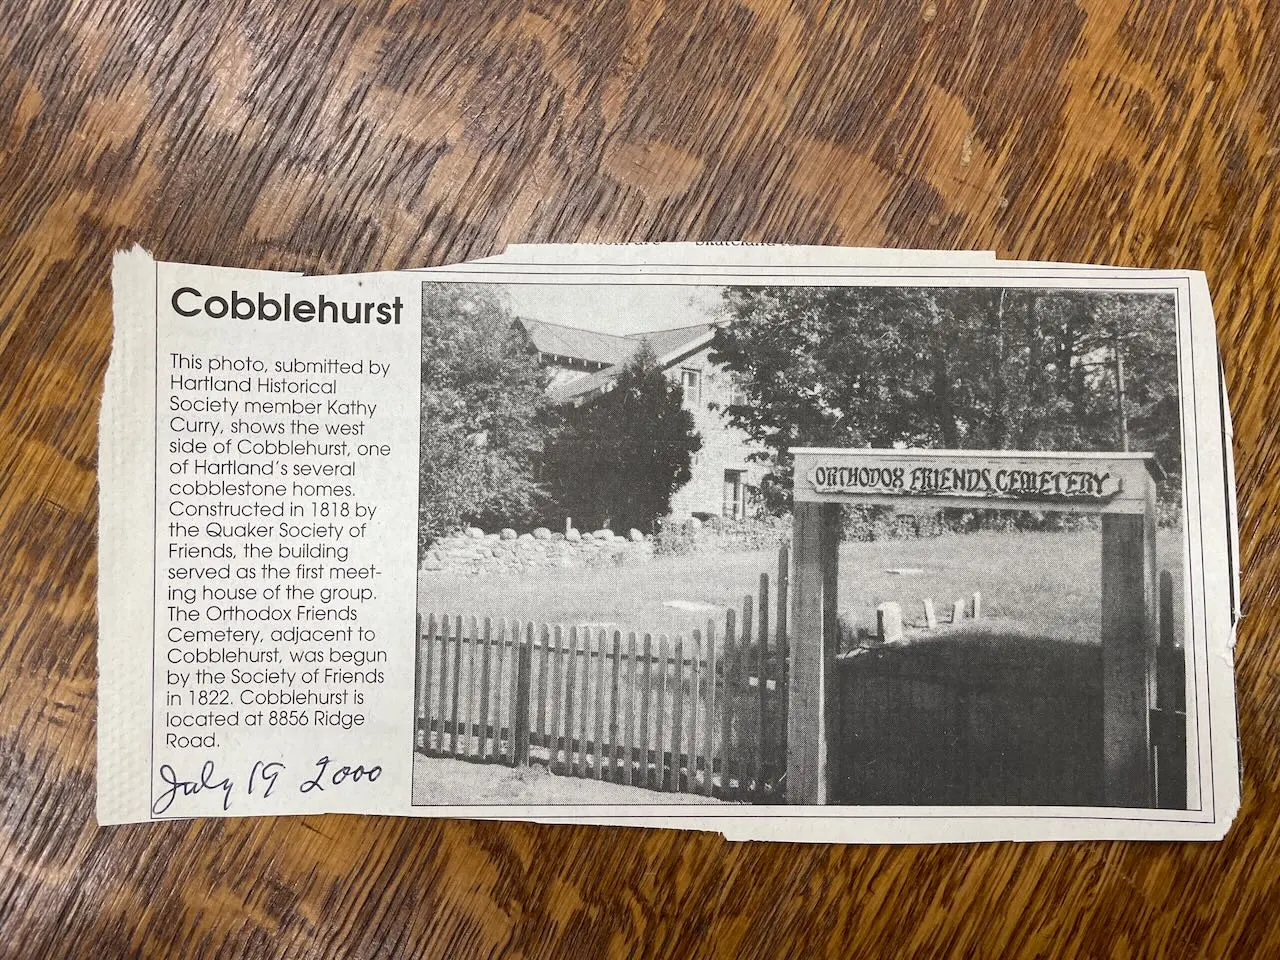 Cobblehurst
This photo, submitted by
Hartland Historical
Society member Kathy
Curry, shows the west
side of Cobblehurst, one
of Hartland's several
cobblestone homes.
Constructed in 1818 by
the Quaker Society of
Friends, the building
served as the first meet-
ing house of the group.
The Orthodox Friends
Cemetery, adjacent to
Cobblehurst, was begun
by the Society of Friends
in 1822. Cobblehurst is
located at 8856 Ridge
Road.
July 19 2000
ORTHODOX FRIENDS CEMETERY